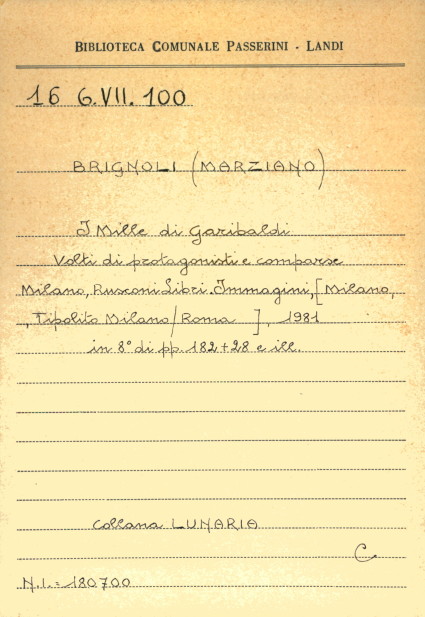 BIBLIOTECA COMUNALE PASSERINI - LANDI
16 6.VII.100
BRIGNOLI (MARZIANO)
I Mille di Garibaldi
Volti di protagonisti e comparse
Milano, Rusconi Libri. Immagini, [Milano,
, Tipolito Milano/Roma ], 1981
in 8° di pp. 182+28 e ill.
Collana LUNARIA
C
N.I.= 180700